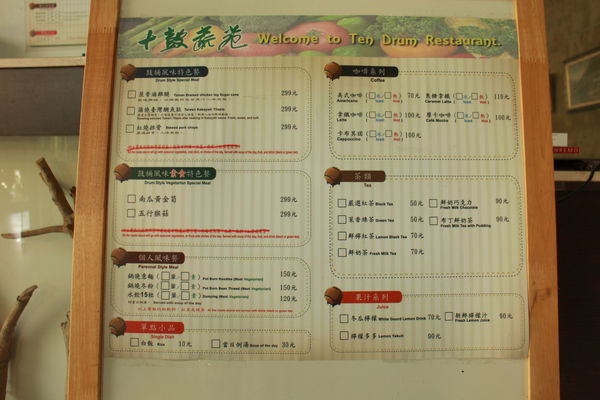 十鼓蔬苑 Welcome to Ten Drum Restaurant.
鼓桶風味特色餐
Drum Style Special Meal
蔗香油雞腿 Taiwan Braised chicken leg Sugar cane 299元
蒲燒臺灣鯛魚肚 299元
紅燒排骨 Stewed pork chops 299元
鼓桶風味素食特色餐
Drum Style Vegetarian Special Meal
南瓜黃金筍 299元
五行猴菇 299元
個人風味餐
Personal Style Meal
鍋燒意麵(葷/素) Pot Burn Noodles (Meat Vegetarian) 150元
鍋燒冬粉(葷/素) Pot Burn Bean Thread (Meat Vegetarian) 150元
水餃15粒(葷/素) Dumpling (Meat Vegetarian) 120元
單點小品
Single Dish
白飯 Rice 10元 當日例湯 Soup of the day 30元
咖啡系列
Coffee
美式咖啡(冰/熱) 70元 焦糖拿鐵(冰/熱) 110元
Americano Iced Hot Caramel Latte Iced Hot
拿鐵咖啡(冰/熱) 100元 摩卡咖啡(冰/熱) 100元
Latte Iced Hot Café Mocha Iced Hot
卡布其諾(冰/熱) 100元
Cappuccino Iced Hot
茶類
Tea
嚴選紅茶 Black Tea 50元 鮮奶巧克力 90元
Fresh Milk Chocolate
茉香綠茶 Green Tea 50元 布丁鮮奶茶 90元
Fresh Milk Tea with Pudding
鮮檸紅茶 Lemon Black Tea 70元
鮮奶茶 Fresh Milk Tea 70元
果汁系列
Juice
冬瓜檸檬 White Gourd Lemon Drink 70元 新鮮檸檬汁 90元
Fresh Lemon Juice
檸檬多多 Lemon Yakult 90元